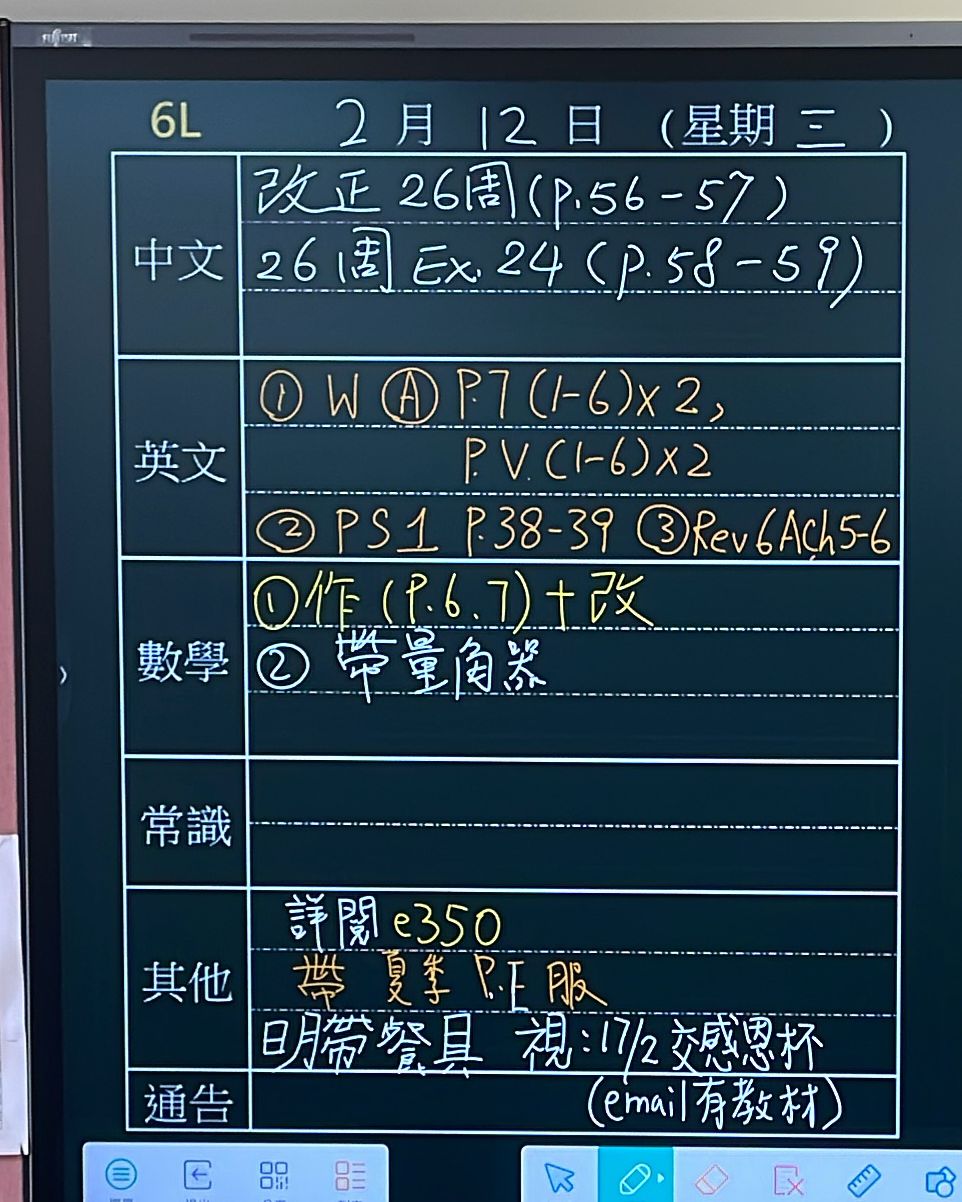 FUJITSU
6L 2月12日(星期三)
中文
改正 26周(P.56-57)
26周 Ex. 24 (P.58-59)
英文
① W Ⓐ P.7 (1-6)×2,
P.V. (1-6)×2
② PS1 P.38-39 ③Rev 6A Ch5-6
數學
①作 (P.6.7)+改
② 帶量角器
常識
其他
詳閱 e350
帶 夏季 P.E 服
明帶餐具 視:17/2交感恩杯
通告
(email有教材)